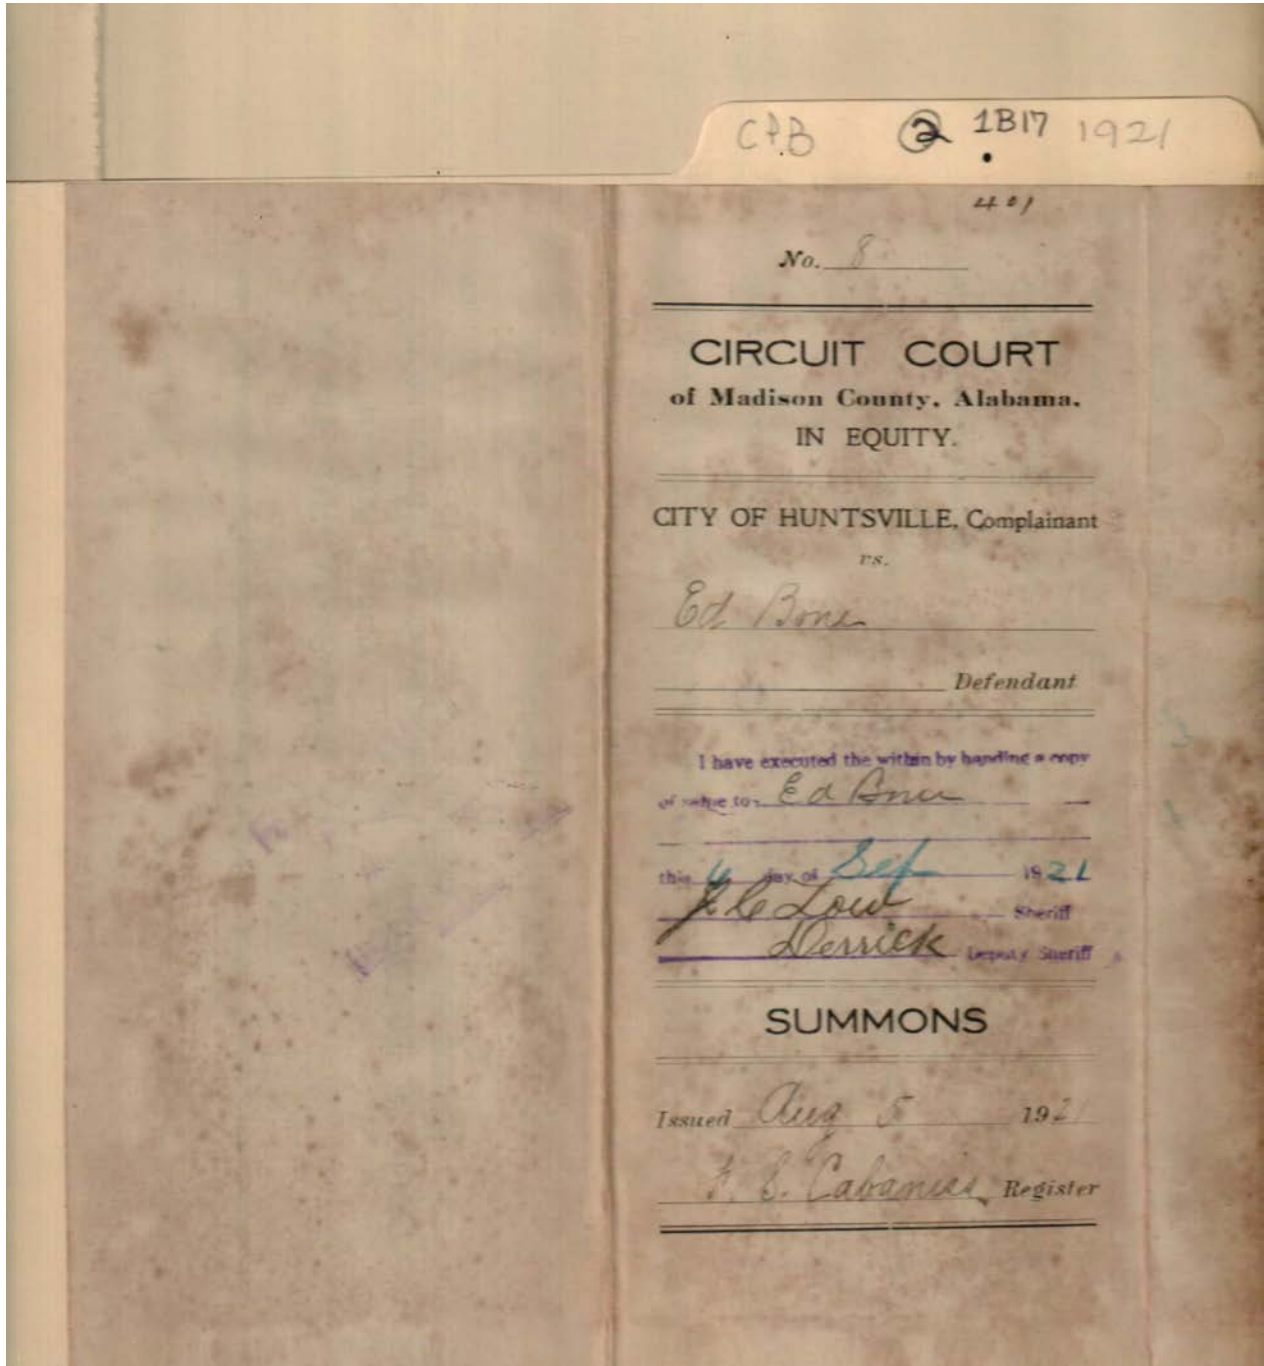 CPB 2 1B17 1921
401
No. 8
CIRCUIT COURT
of Madison County, Alabama.
IN EQUITY.
CITY OF HUNTSVILLE, Complainant
vs.
Ed Bone
Defendant
I have executed the within by handing a copy
of same to Ed Bone
this 6 day of Sep 1921
Sheriff
Derrick Deputy Sheriff
SUMMONS
Issued Aug 5 1921
Cabaniss Register